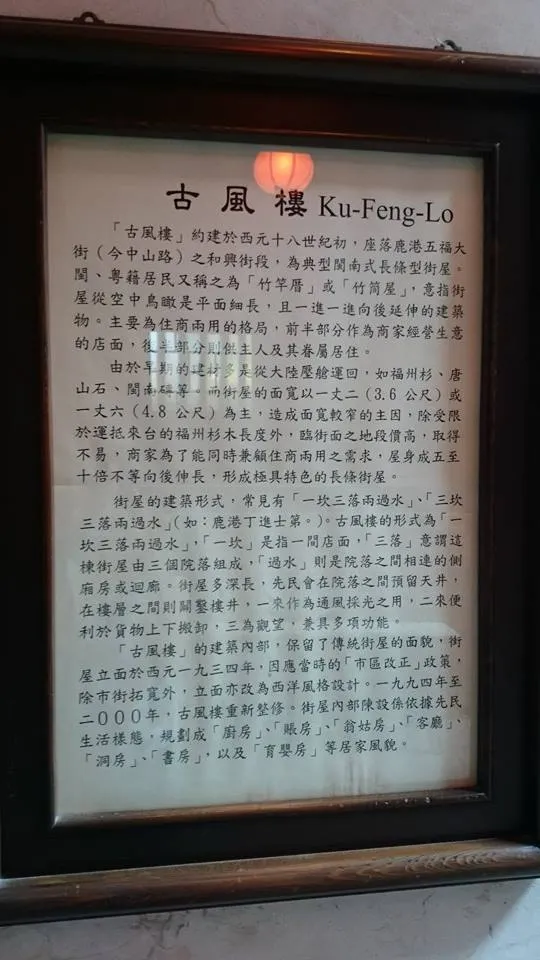 古風樓 Ku-Feng-Lo
「古風樓」約建於西元十八世紀初，座落鹿港五福大
街（今中山路）之和興街段，為典型閩南式長條型街屋。
閩、粵籍居民又稱之為「竹竿厝」或「竹筒屋」，意指街
屋從空中鳥瞰是平面細長，且一進一進向後延伸的建築
物。主要為住商兩用的格局，前半部分作為商家經營生意
的店面，後半部分則供主人及其眷屬居住。
由於早期的建材多是從大陸壓艙運回，如福州杉、唐
山石、閩南磚等。而街屋的面寬以一丈二（3.6 公尺）或
一丈六（4.8 公尺）為主，造成面寬較窄的主因，除受限
於運抵來台的福州杉木長度外，臨街面之地段價高，取得
不易，商家為了能同時兼顧住商兩用之需求，屋身成五至
十倍不等向後伸長，形成極具特色的長條街屋。
街屋的建築形式，常見有「一坎三落兩過水」、「三坎
三落兩過水」（如：鹿港丁進士第。）。古風樓的形式為「一
坎三落兩過水」，「一坎」是指一間店面，「三落」意謂這
棟街屋由三個院落組成，「過水」則是院落之間相連的側
廂房或迴廊。街屋多深長，先民會在院落之間預留天井，
在樓層之間則關鑿樓井，一來作為通風採光之用，二來便
利於貨物上下搬卸，三為觀望，兼具多項功能。
「古風樓」的建築內部，保留了傳統街屋的面貌，街
屋立面於西元一九三四年，因應當時的「市區改正」政策，
除市街拓寬外，立面亦改為西洋風格設計。一九九四年至
二000年，古風樓重新整修。街屋內部陳設係依據先民
生活樣態，規劃成「廚房」、「賬房」、「翁姑房」、「客廳」、
「洞房」、「書房」，以及「育嬰房」等居家風貌。